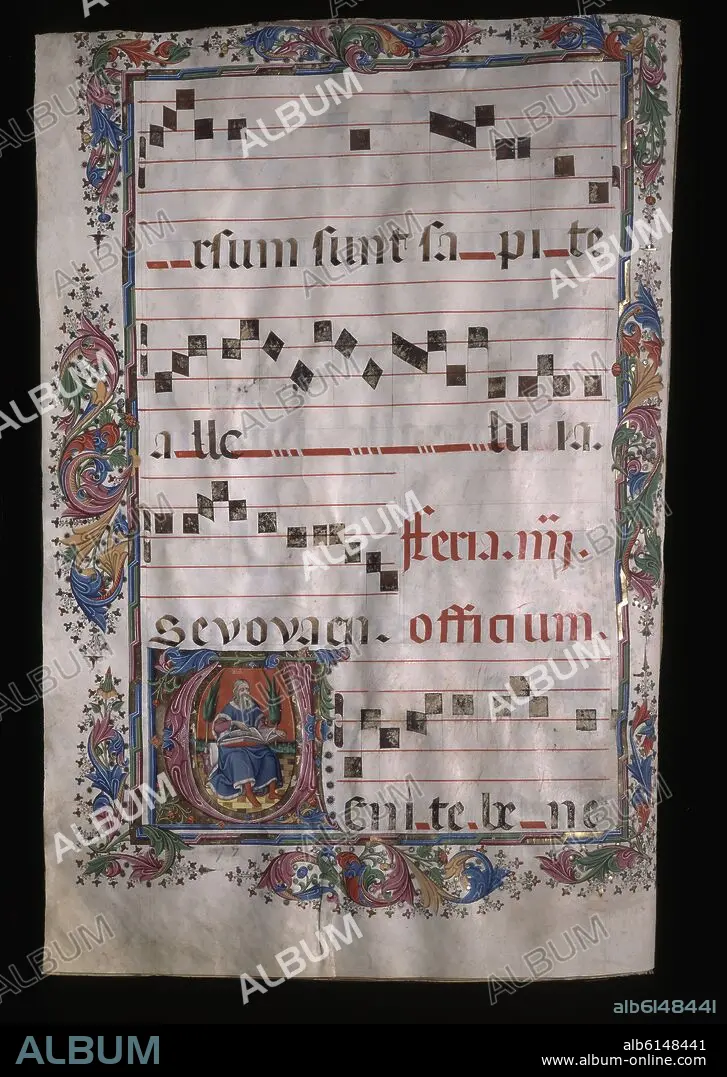 rsum sunt sa pi te
a lle lu ia.
feria. iiij.
Sevovaen. officium.
Venite bene
alb6148441
ALBUM
alb6148441
www.album-online.com